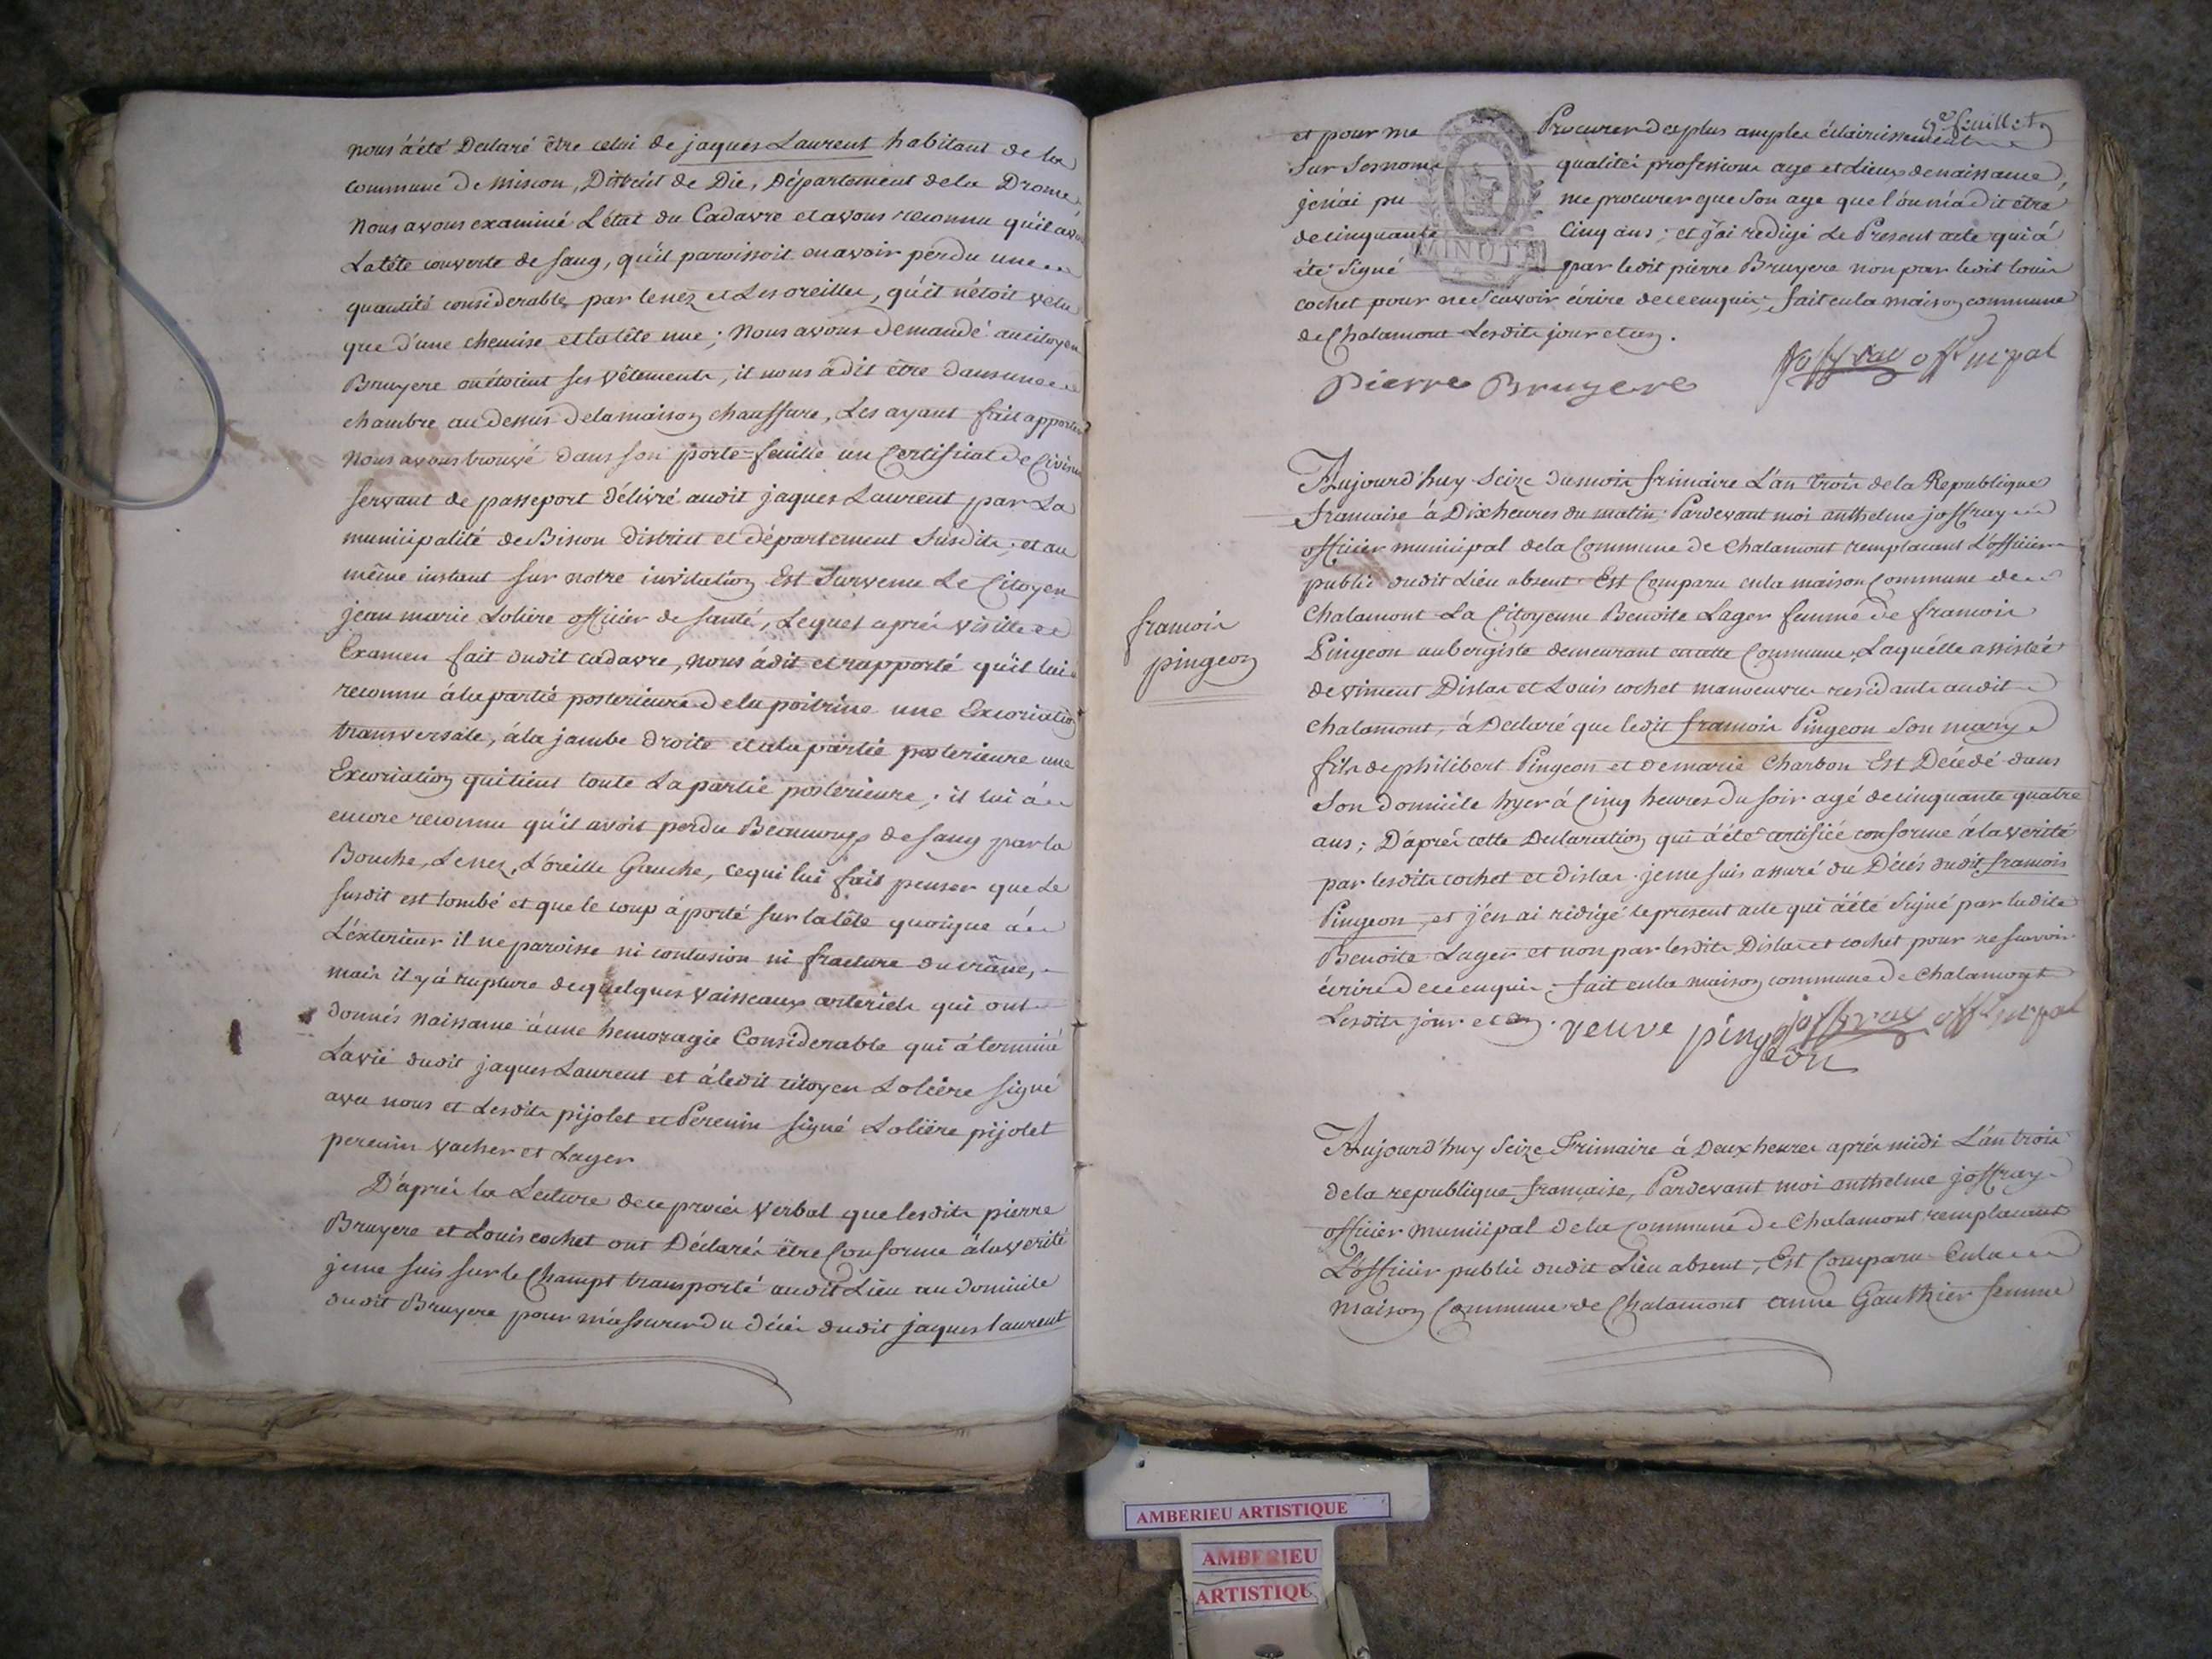 nous a été Declaré être celui de jaques Laurent habitant de la
commune de Mison, District de Die, Département de la Drome,
Nous avons examiné L'état du Cadavre et avons reconnu qu'il avoi
La tête couverte de sang, qu'il paroissoit en avoir perdu une
quantité considerable par le nez et Les oreilles, qu'il n'étoit vêtu
que d'une chemise et la tête nue; Nous avons demandé au citoyen
Bruyere ou étoient ses vêtements, il nous à dit être dans une
chambre au dessus de la maison chauffure, Les ayant fait apporter
Nous avons trouvé dans son porte=feuille un Certificat de Civisme
servant de passeport délivré audit jaques Laurent par La
municipalité de Bison district et département susdits; et au
même instant sur notre invitation Est Survenu Le Citoyen
jean marie Loliere officier de santé, Lequel après visitte et
Examen fait dudit cadavre, nous à dit et rapporté qu'il lui a
reconnu à la partie posterieure de la poitrine une Excoriation
transversale, à la jambe droite et à la partie posterieure une
Excoriation qui tient toute La partie posterieure; il lui à
encore reconnu qu'il avoit perdu Beaucoup de sang par la
Bouche, Le nez, L'oreille Gauche, ce qui lui fait penser que Le
susdit est tombé et que le coup à porté sur la tête quoique à
L'exterieur il ne paroisse ni contusion ni fracture du crâne,
mais il y à rupture de quelques vaisseaux arteriels qui ont
donnés naissance à une hemoragie Considerable qui à terminé
La vie dudit jaques Laurent et à ledit citoyen Loliere signé
avec nous et Lesdits pijolet et Perenin signé Loliere pijolet
perenin vacher et Lager
D'après la Lecture de ce procès verbal que lesdits pierre
Bruyere et Louis cochet ont Déclarés être Conforme à la verité
je me suis sur le Champt transporté audit Lieu au domicile
dudit Bruyere pour m'assurer du décés dudit jaques laurent
9e feuillet
et pour me Procurer des plus amples éclaircissements
Sur Ses noms qualités professions age et Lieux de naissance,
je n'ai pu me procurer que Son age que l'on m'a dit etre
de cinquante Cinq ans; et j'ai redigé Le Present acte qui à
MINUTE
été Signé par ledit pierre Bruyere non par ledit louis
cochet pour ne Scavoir écrire de ce enquis, fait en la maison commune
de Chalamont Lesdits jour et an.
Pierre Bruyere Joffray offr mpal
francois
pingeon
Aujourd'huy Seize du mois frimaire L'an trois de la Republique
francaise à Dix heures du matin, Pardevant moi anthelme joffray
officier municipal de la Commune de Chalamont remplacant L'officier
public dudit Lieu absent. Est Comparu en la maison Commune de
Chalamont La Citoyenne Benoite Lager femme de francois
Pingeon aubergiste demeurant en cette Commune, Laquélle assistée
de vincent Dislas et Louis cochet manoeuvres residants audit
Chalamont, à Declaré que ledit francois Pingeon Son mary
fils de philibert Pingeon et de marie Charbon Est Décédé dans
Son domicile hyer à Cinq heures du soir agé de cinquante quatre
ans; D'après cette Declaration qui à été certifiée conforme à la verité
par lesdits cochet et dislas. je me suis assuré du Décés dudit francois
Pingeon, et j'en ai rédigé le present acte qui à été Signé par ladite
Benoite Lager et non par lesdits Dislas et cochet pour ne scavoir
écrire de ce enquis. fait en la maison commune de Chalamont
Lesdits jour et an. veuve pingeon joffray offr mpal
Aujourd'huy Seize Frimaire à Deux heures après midi L'an trois
de la republique francaise, Pardevant moi anthelme joffray
officier municipal de la Commune de Chalamont remplacant
L'officier public dudit Lieu absent, Est Comparu En la
Maison Commune de Chalamont anne Gauthier femme
AMBERIEU ARTISTIQUE
AMBERIEU
ARTISTIQU